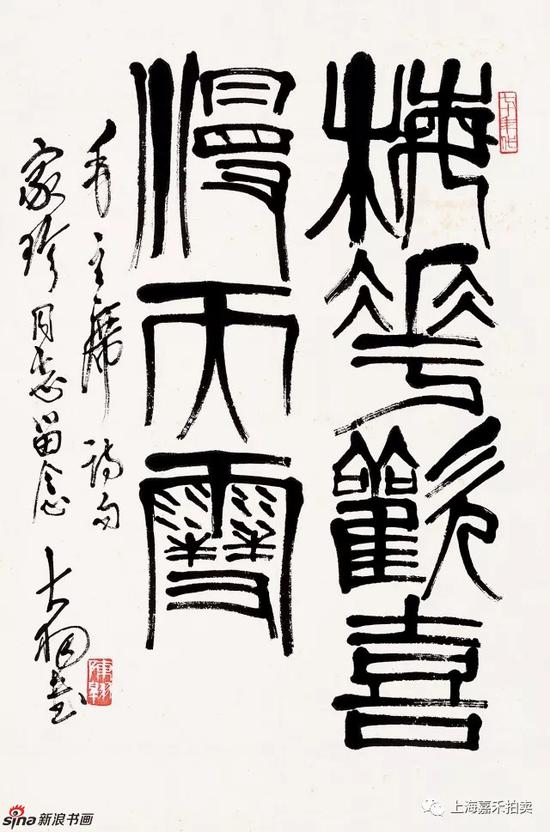 梅花歡喜
漫天雪
毛主席诗句
家珍同志留念
大羽书
sina新浪书画
上海嘉禾拍卖